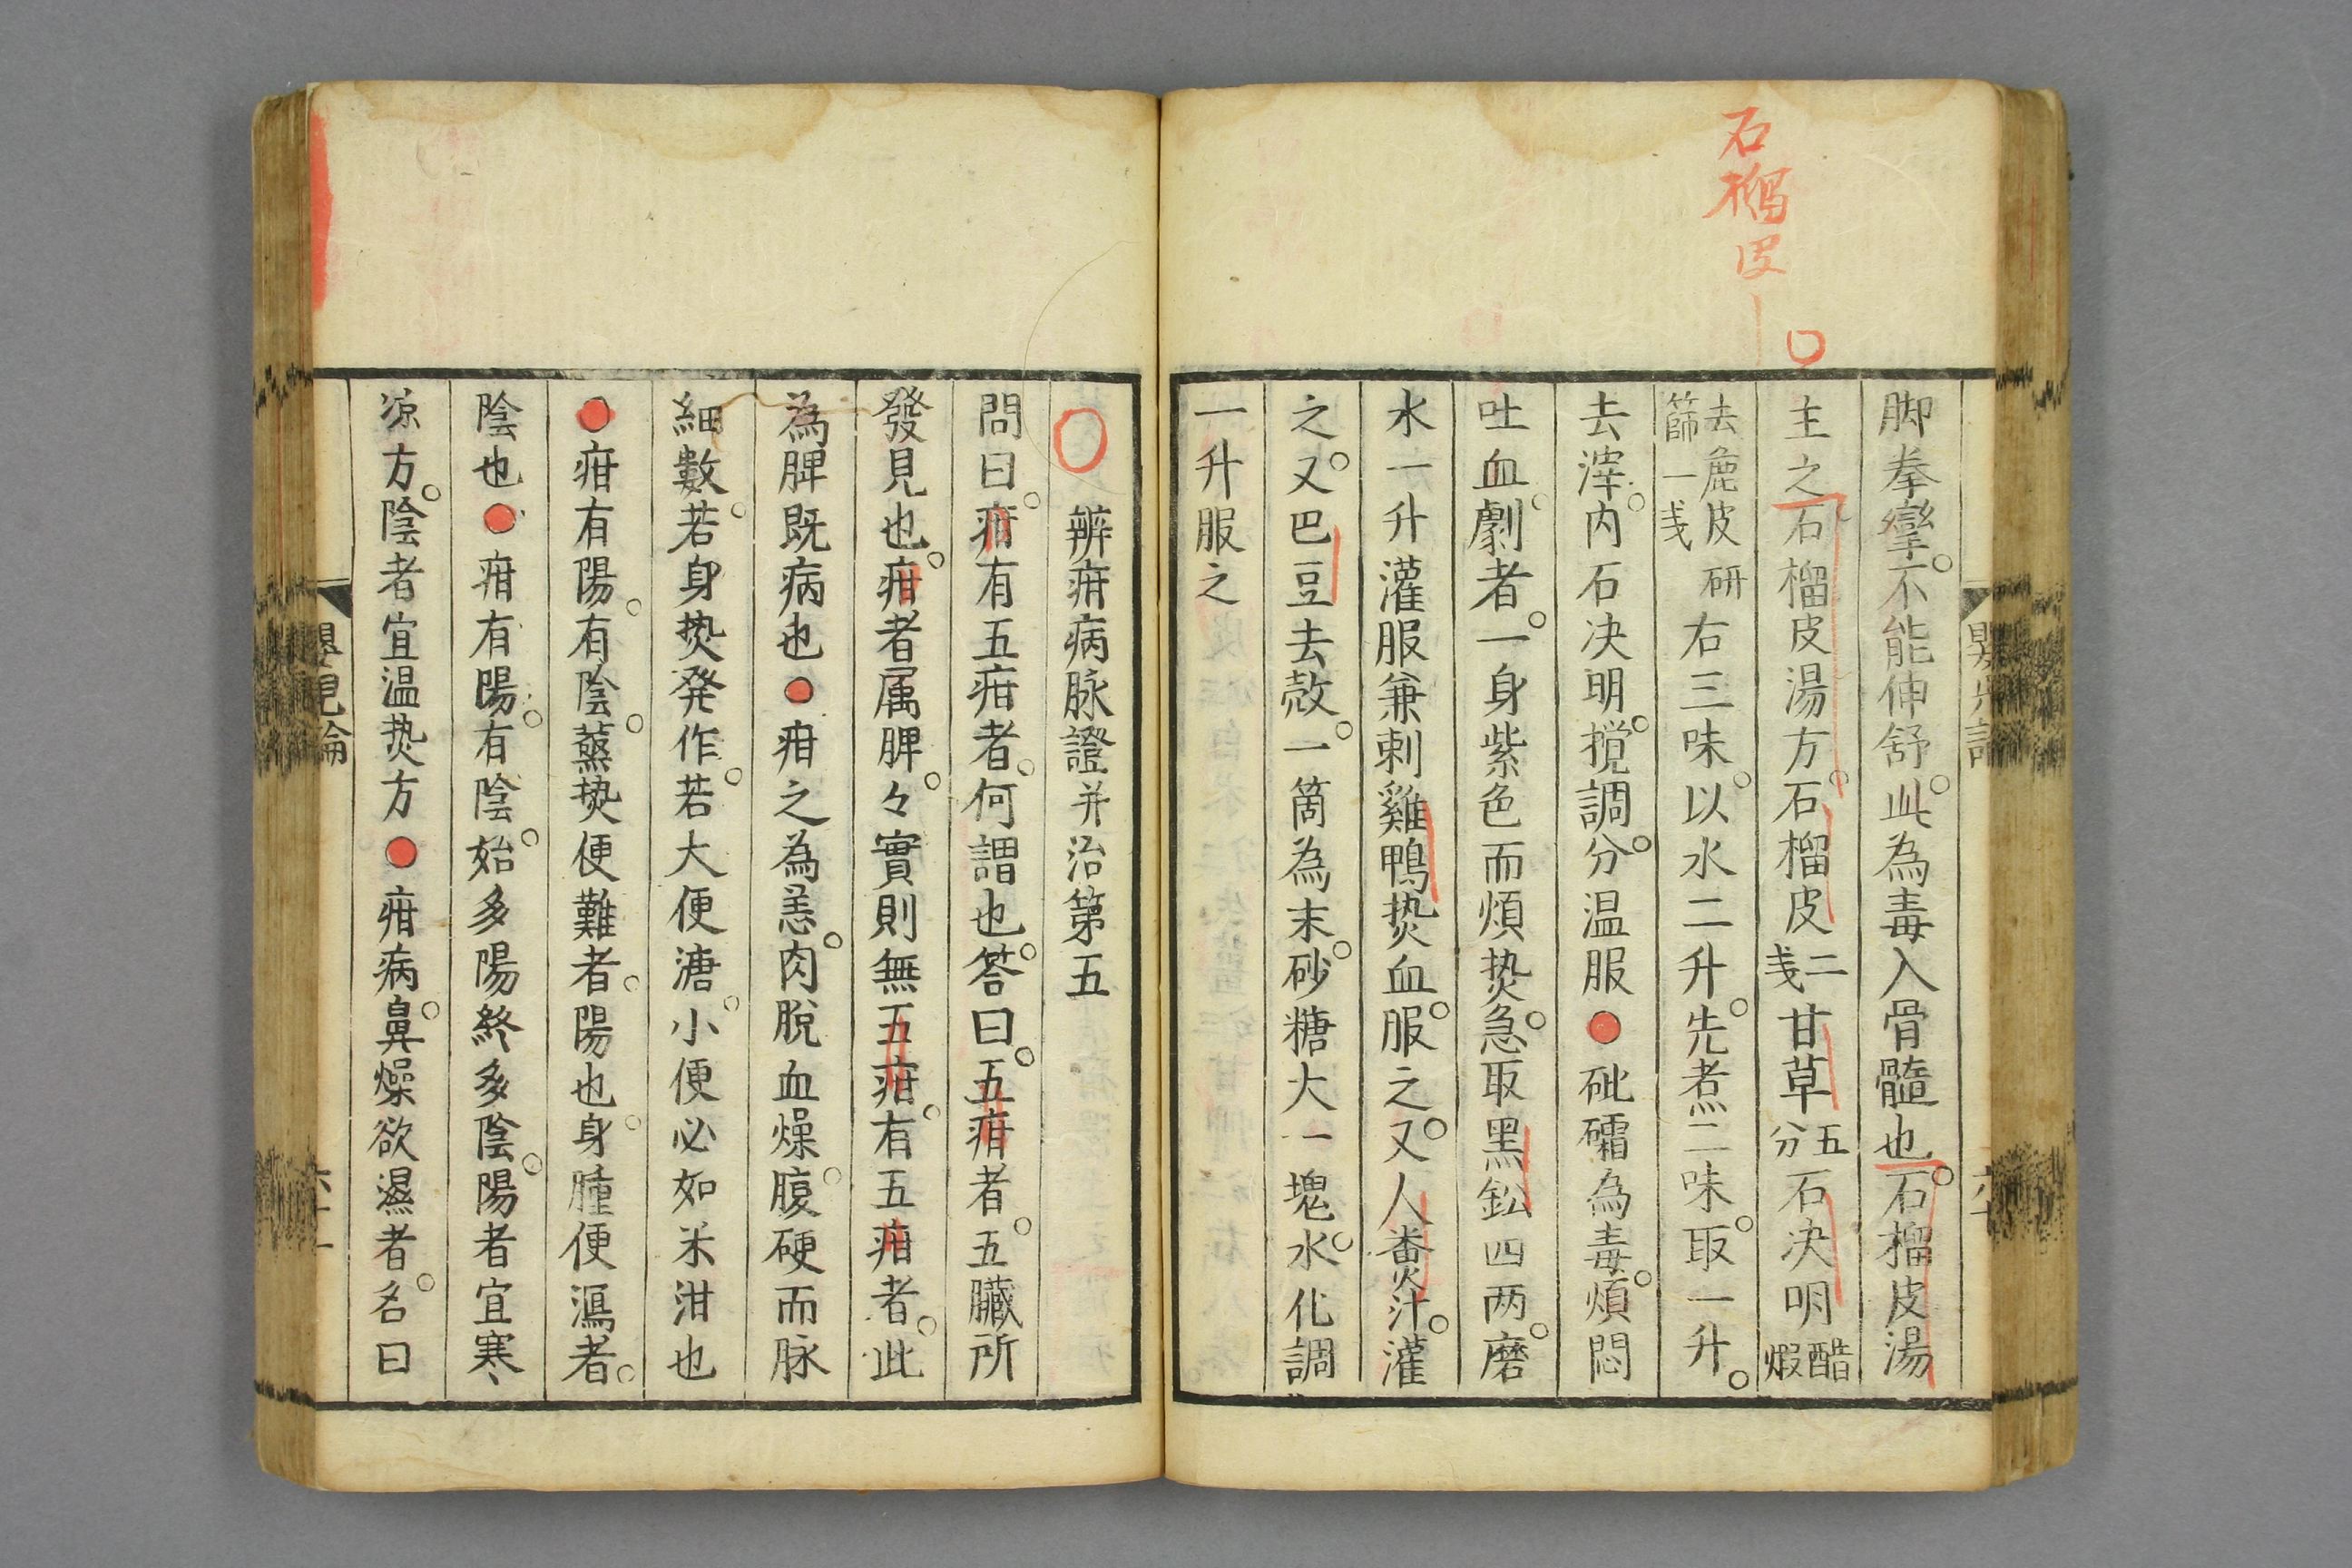 石榴皮
脚拳攣不能伸舒此為毒入骨髓也石榴皮湯
主之石榴皮湯方石榴皮二戋甘草五分石决明醋煅
去麁皮研篩一戋右三味以水二升先煮二味取一升
去滓内石决明攪調分温服●砒礵為毒煩悶
吐血劇者一身紫色而煩热急取黑鈆四两磨
水一升灌服兼刺雞鴨热血服之又人糞汁灌
之又巴豆去殻一箇為末砂糖大一塊水化調
一升服之
辨疳病脉證并治第五
問曰疳有五疳者何謂也答曰五疳者五臓所
發見也疳者属脾々實則無五疳有五疳者此
為脾既病也●疳之為恙肉脫血燥腹硬而脉
細數若身热発作若大便溏小便必如米泔也
●疳有陽有陰蒸热便難者陽也身腫便瀉者
陰也●疳有陽有陰始多陽終多陰陽者宜寒
凉方陰者宜温热方●疳病鼻燥欲濕者名曰